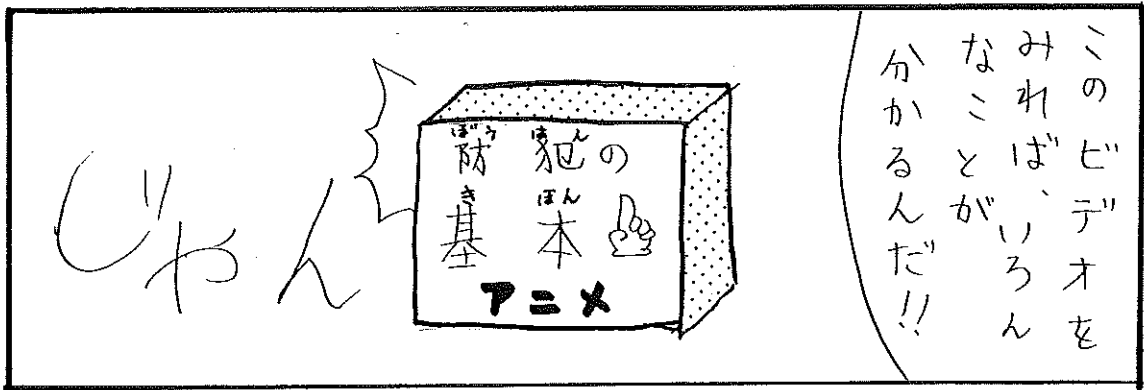 このビデオを
みれば、いろん
なことが
分かるんだ!!
防犯の
ぼう はん
基本
き ほん
アニメ
じゃん